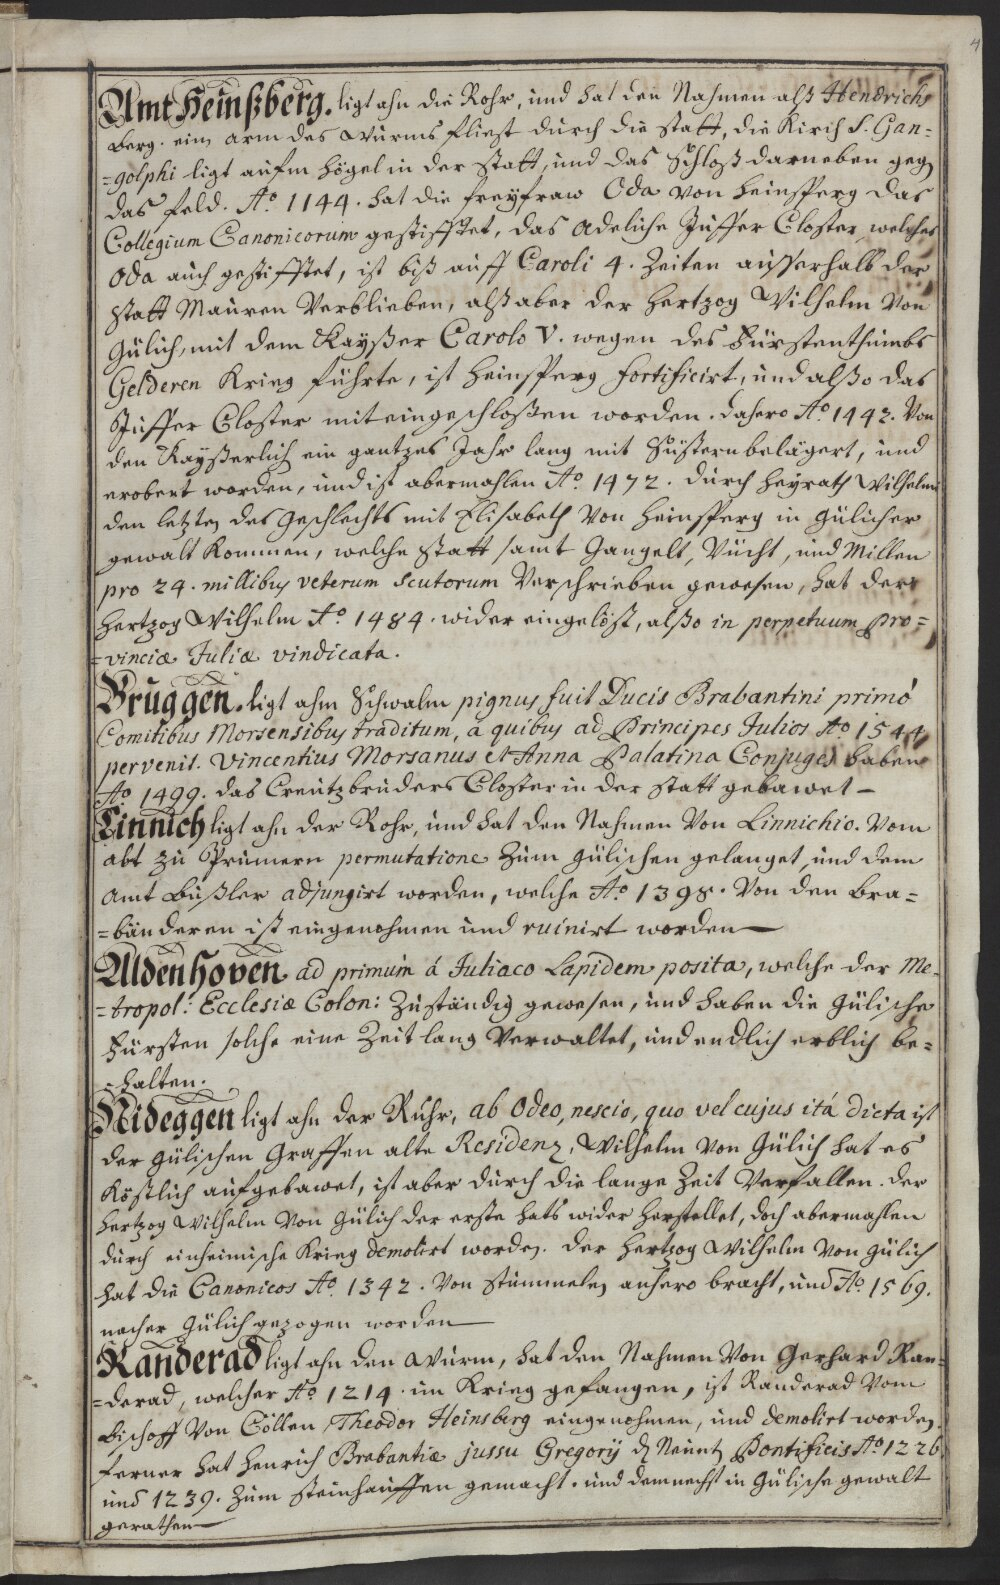 4
Amt Heinßberg. ligt ahn die Rohr, und hat den Nahmen alß Hendrichs
berg. ein arm des Wurms fliest durch die statt, die Kirch S. Gan=
=golphi ligt aufm högel in der statt, und das Schloß darneben gegen
das feld. Ao. 1144. hat die freyfraw Oda von heinsperg das
Collegium Canonicorum gestifftet, das Adeliche Juffer Closter welches
Oda auch gestifftet, ist biß auff Caroli 4. Zeiten ausserhalb der
statt Mauren Verblieben, alß aber der hertzog Wilhelm Von
Gülich, mit dem Kayßer Carolo V. wegen des Fürstenthumbs
Gelderen Krieg führte, ist heinsperg fortificirt, und alßo das
Juffer Closter mit eingeschloßen worden. dahero Ao 1442. Von
den Kayßerlich ein gantzes Jahr lang mit Süstern belägert, und
erobert worden, und ist abermahlen Ao. 1472. durch heyrath Wilhelmi
den letzten des Geschlechts mit Elisabeth Von heinsperg in Gülicher
gewalt Kommen, welche statt samt Gangelt, Vücht, und Millen
pro 24. millibus veterum scutorum Verschrieben gewesen, hat der
hertzog Wilhelm Ao. 1484. wider eingelöst, alßo in perpetuum pro=
=vinciæ Juliæ vindicata.
Bruggen. ligt ahm Schwalm pignus fuit Ducis Brabantini primò
Comitibus Morsensibus traditum, a quibus ad Principes Julios Ao 1544
pervenit. Vincentius Morsanus et Anna Palatina Conjuges haben
Ao 1499. das Creutzbruders Closter in der statt gebawet —
Linnich ligt ahn der Rohr, und hat den Nahmen Von Linnichio. Vom
abt zu Prümern permutatione Zum gülischen gelanget, und dem
Amt bußler adjungirt worden, welche Ao. 1398. Von den bra=
=bänderen ist eingenohmen und ruinirt worden —
Aldenhoven ad primum á Juliaco Lapidem posita, welche der Me=
=tropol: Ecclesiæ Colon: Zuständig gewesen, und haben die gülische
Fürsten solche eine Zeit lang Verwaltet, und endlich erblich be=
=halten.
Nideggen ligt ahn der Ruhr, ab Odeo, nescio, quo vel cujus itá dicta ist
der gülischen Graffen alte Residenz, Wilhelm Von Gülich hat es
Köstlich aufgebawet, ist aber durch die lange Zeit Verfallen. der
hertzog Wilhelm Von Gülich der erste hats wider herstellet, doch abermahlen
durch einheimische Krieg demolirt worden. der hertzog Wilhelm Von gülich
hat die Canonicos Ao. 1342. Von stümmelen anhero bracht, und Ao. 1569.
nacher Gülich gezogen worden —
Randerad ligt ahn den Wurm, hat den Nahmen Von Gerhard Ran=
=derad, welcher Ao 1214. im Krieg gefangen, ist Randerad Vom
bischoff Von Cöllen Theodor Heinsberg eingenohmen, und demolirt worden
ferner hat Henrich Brabantiæ jussu Gregorÿ d Neunt Pontificis Ao 1226
und 1239. Zum steinhauffen gemacht. und demnechst in Gülische gewalt
gerathen —